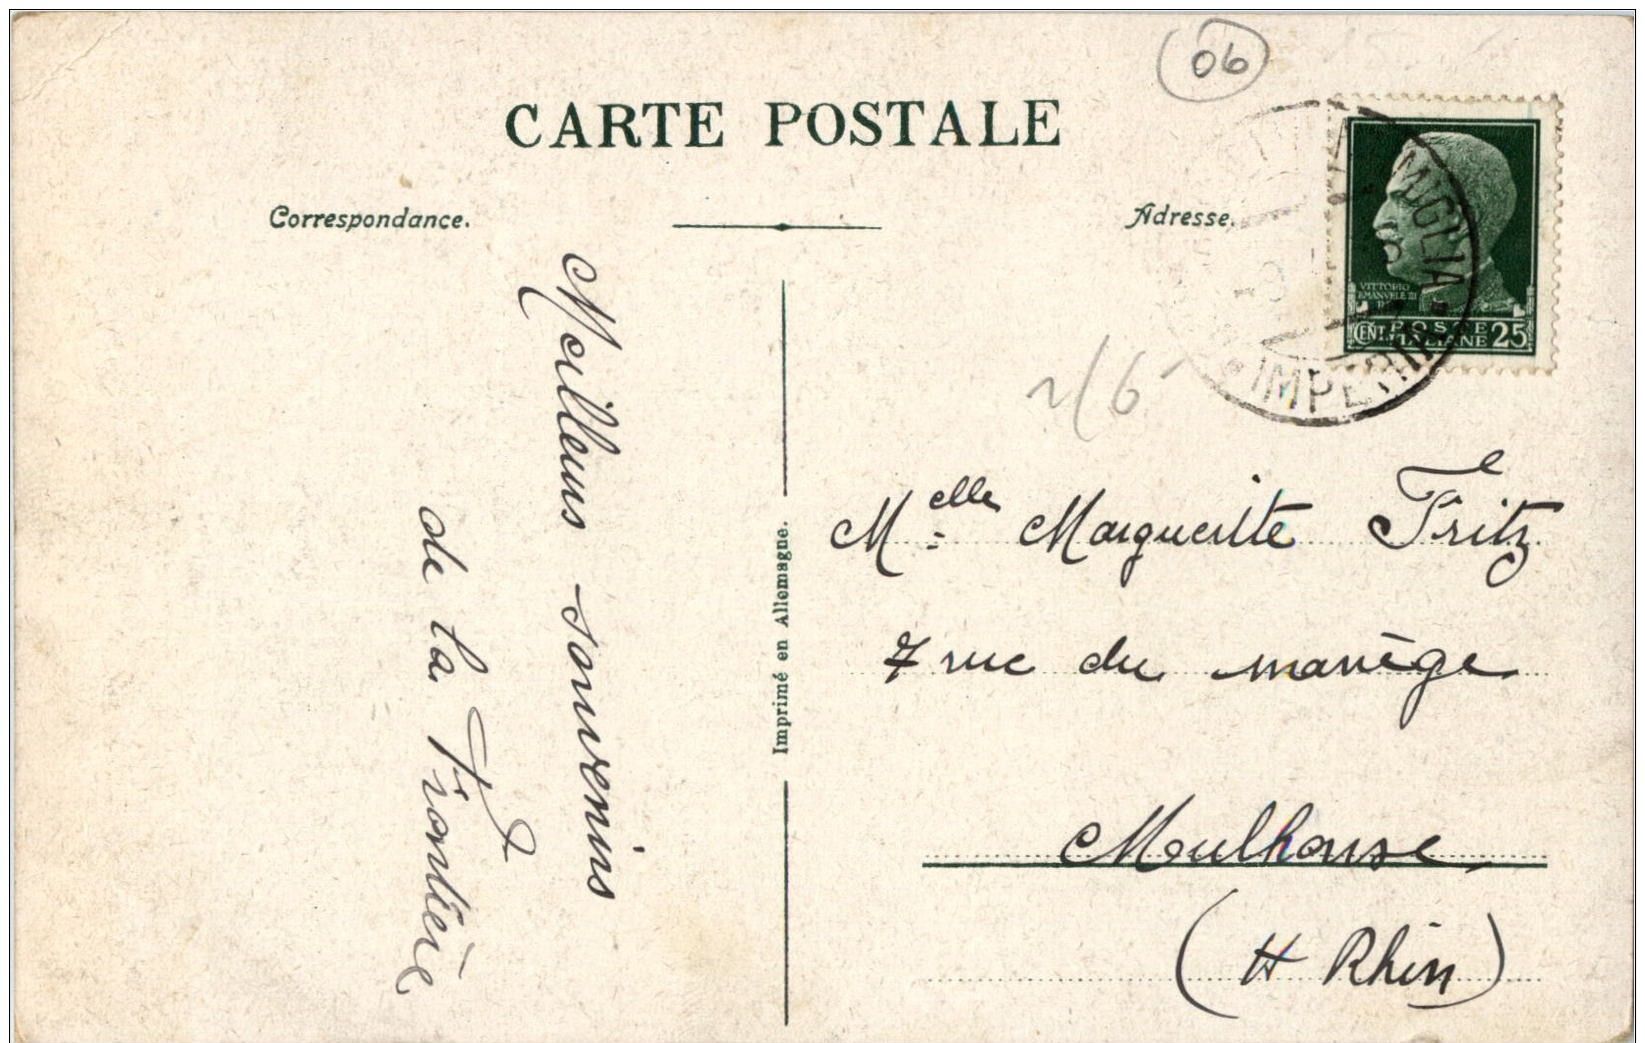 06
CARTE POSTALE
Correspondance.
Adresse.
VITTORIO
EMANVELE III
CENT. POSTE 25
ITALIANE
IMPERIA
2/6
Meilleurs souvenirs
de la Frontière
Imprimé en Allemagne.
Melle Marguerite Fritz
7 rue du manège
Mulhouse
(H Rhin)